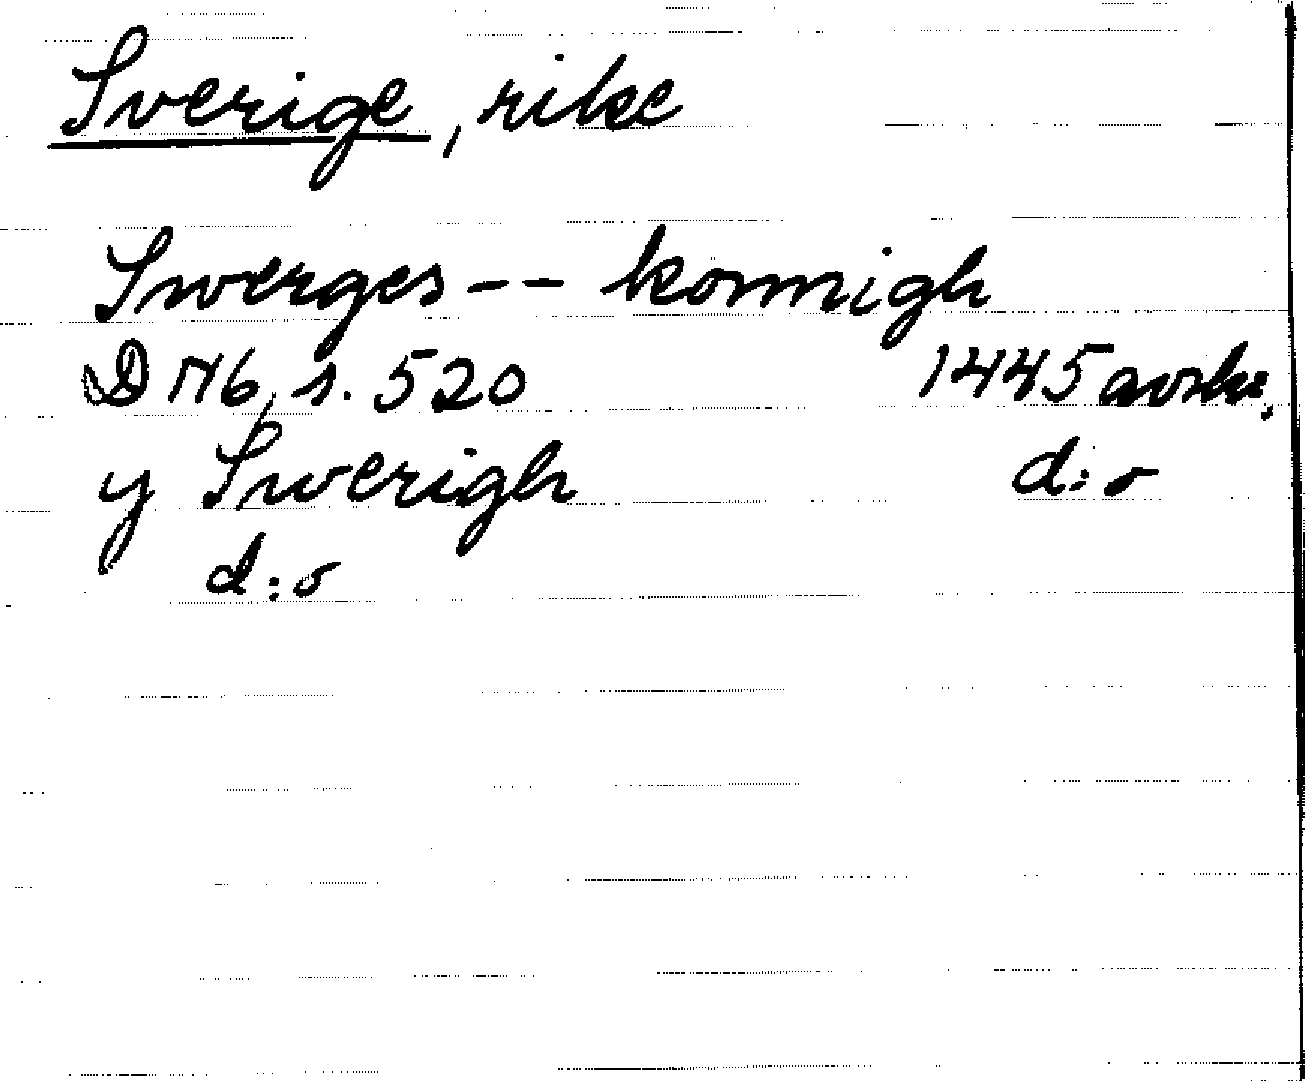 Sverige, rike
Swerges -- konnigh
DN6, s. 520 1445 avskr.
y Swerigh d:o
d:o